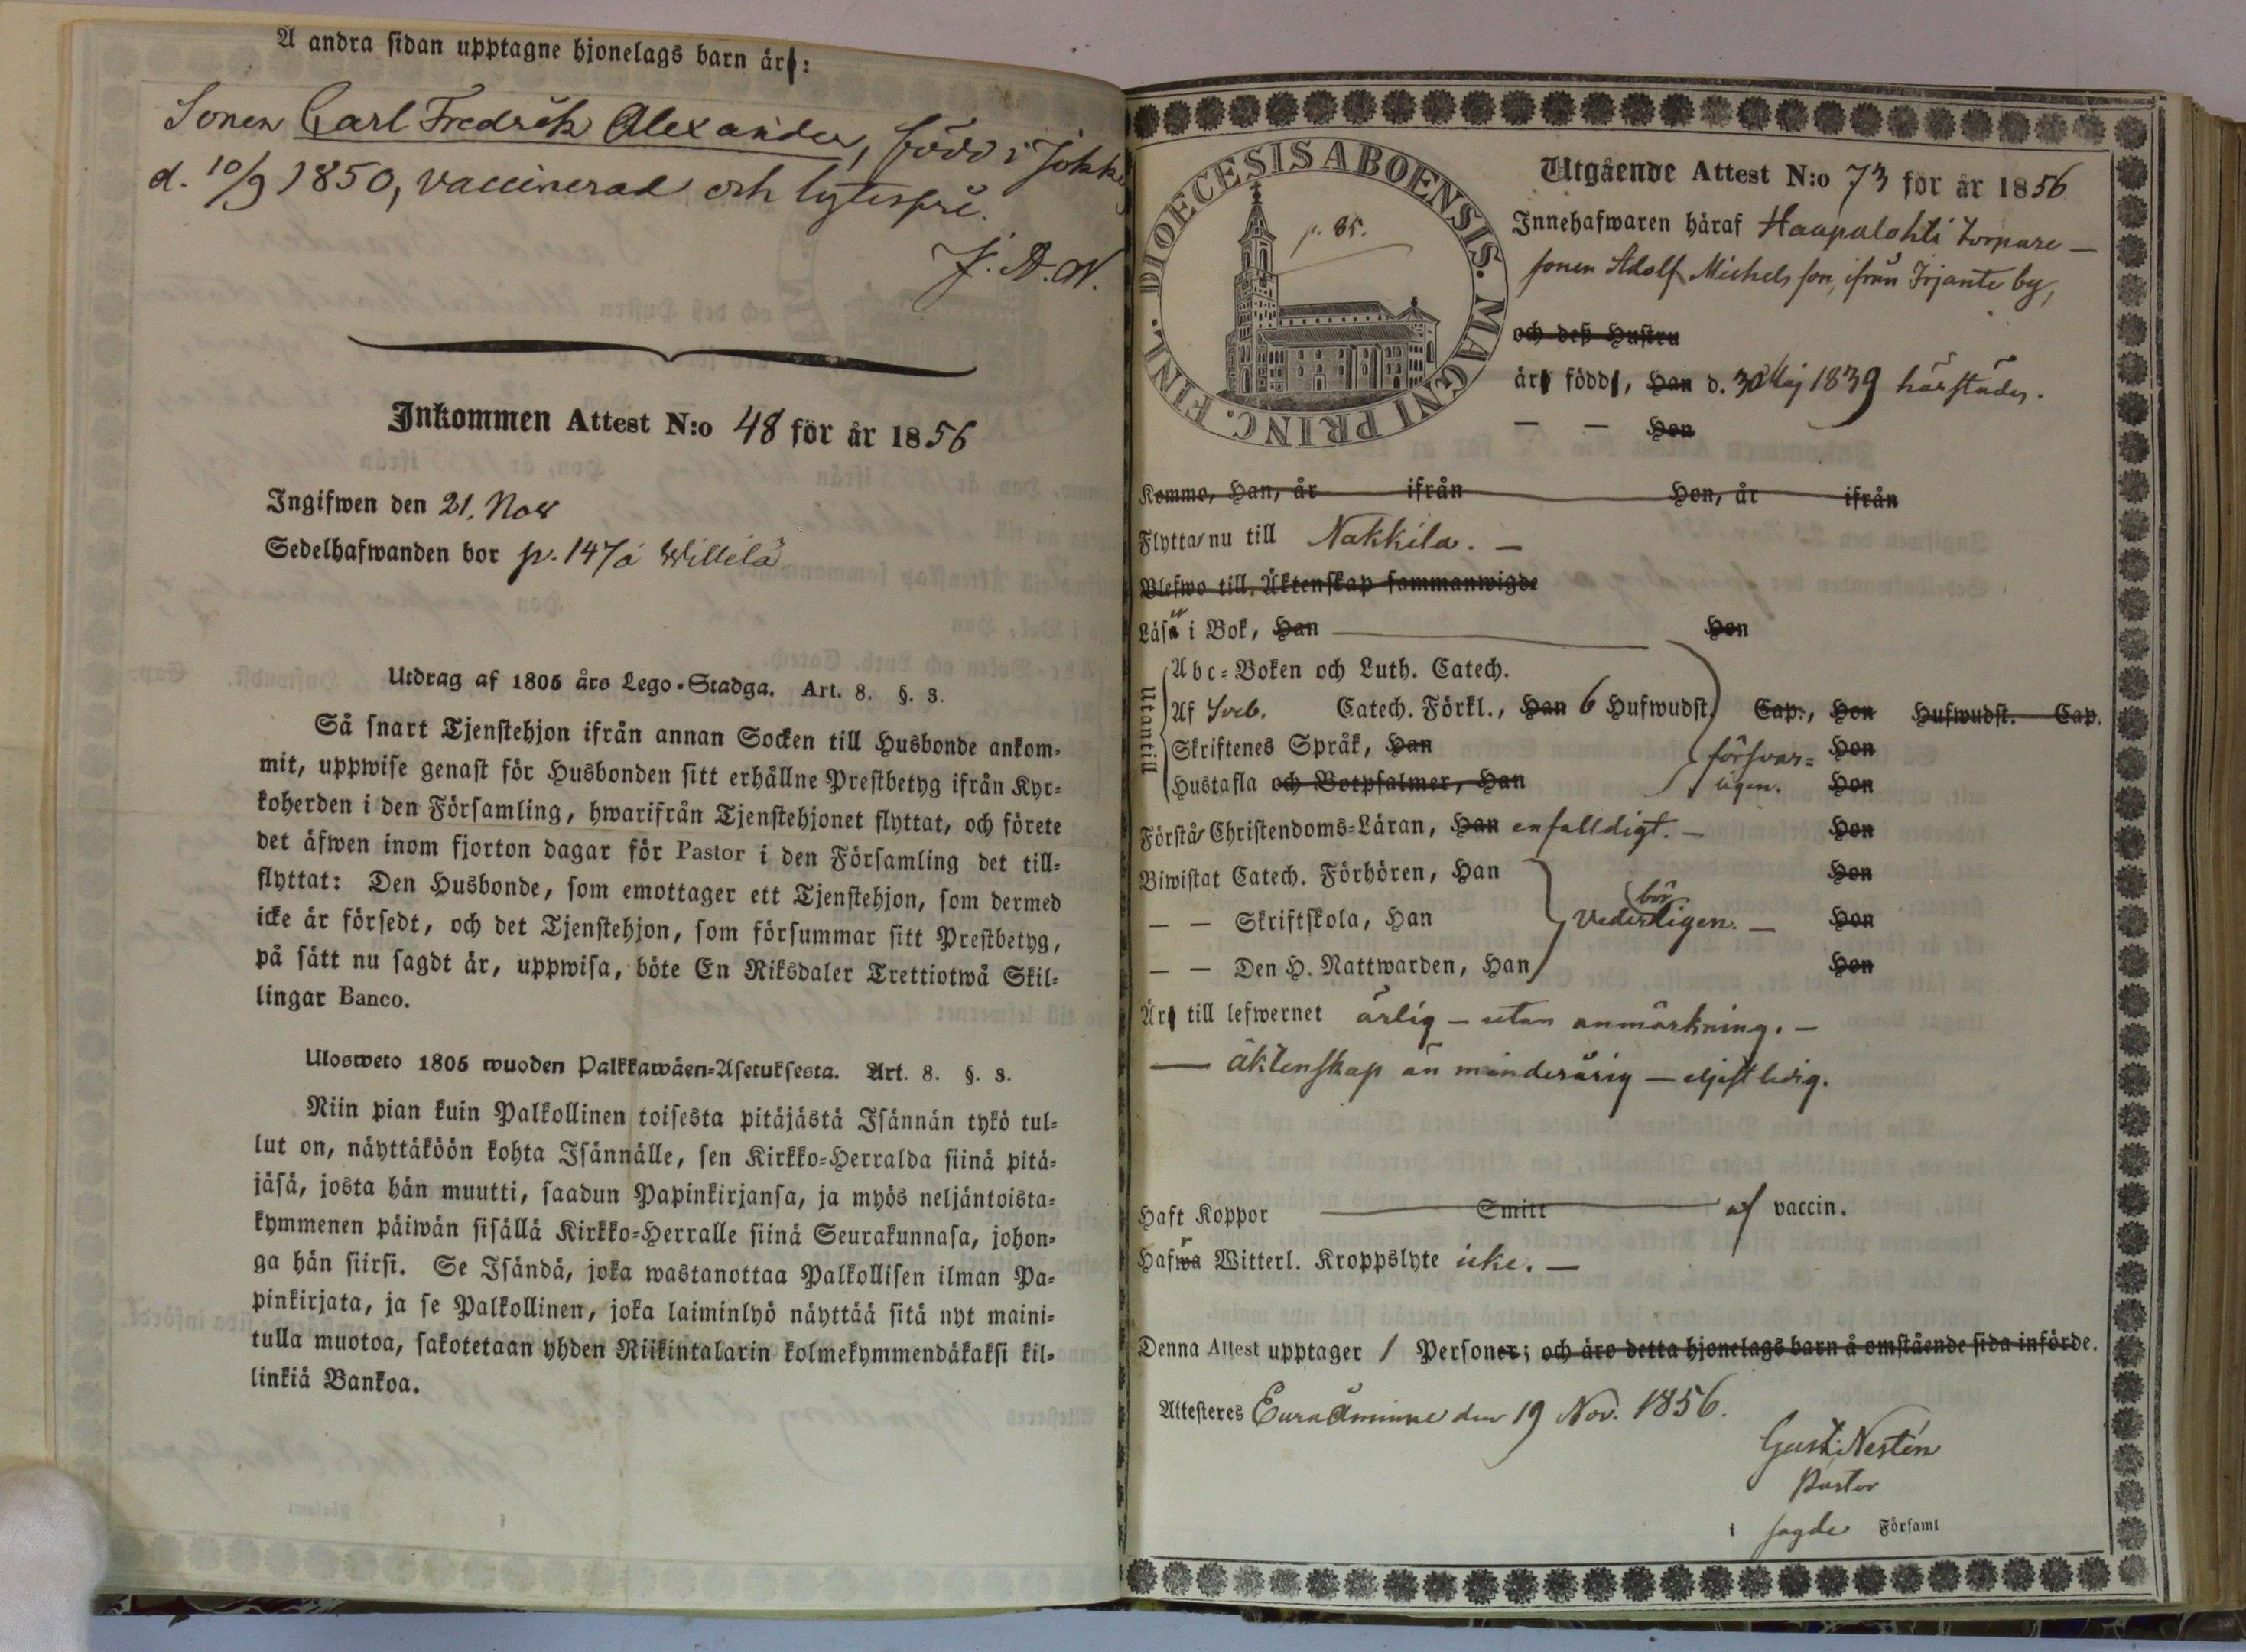 A andra sidan upptagne hjonelags barn är:
Sonen Carl Fredrik Alexander, född i Jokk
d. 10/9 1850, vaccinerad och lytesfri.
J. A. W.
Inkommen Attest N:o 48 för år 1856
Ingifwen den 21. Nov
Sedelhafwanden bor p. 147 å Willilä
Utdrag af 1805 års Lego-Stadga. Art. 8. §. 3.
Så snart Tjenstehjon ifrån annan Socken till Husbonde ankom-
mit, uppwise genast för Husbonden sitt erhållne Prestbetyg ifrån Kyr-
koherden i den Församling, hwarifrån Tjenstehjonet flyttat, och förete
det äfwen inom fjorton dagar för Pastor i den Församling det till-
flyttat: Den Husbonde, som emottager ett Tjenstehjon, som dermed
icke är försedt, och det Tjenstehjon, som försummar sitt Prestbetyg,
på sätt nu sagdt är, uppwisa, böte En Riksdaler Trettiotwå Skil-
lingar Banco.
Ulosweto 1805 wuoden Palkkawäen-Asetuksesta. Art. 8. §. 3.
Niin pian kuin Palkollinen toisesta pitäjästä Isännän tykö tul-
lut on, näyttäköön kohta Isännälle, sen Kirkko-Herralda siinä pitä-
jäsä, josta hän muutti, saadun Papinkirjansa, ja myös neljäntoista-
kymmenen päiwän sisällä Kirkko-Herralle siinä Seurakunnasa, johon-
ga hän siirsi. Se Isändä, joka wastanottaa Palkollisen ilman Pa-
pinkirjata, ja se Palkollinen, joka laiminlyö näyttää sitä nyt maini-
tulla muotoa, sakotetaan yhden Riikintalarin kolmekymmendäkaksi kil-
linkiä Bankoa.
DIOECESIS ABOENSIS. MAGNI PRINC. FINL.
p. 85.
Utgående Attest N:o 73 för år 1856
Innehafwaren häraf Haapalahti torpare-
sonen Adolf Michelsson, ifrån Irjante by,
och deß Hustru
är född, Han d. 30 Maj 1839 härstädes.
— — Hon
Kommo, Han, år ifrån Hon, år ifrån
Flytta nu till Nakkila. —
Blefwo till Äktenskap sammanwigde
Läser i Bok, Han Hon
Utantill
Abc-Boken och Luth. Catech.
Af Sveb. Catech. Förkl., Han 6 Hufwudst. Cap., Hon Hufwudst. Cap.
Skriftenes Språk, Han försvar- Hon
Hustafla och Botpsalmer, Han ligen. Hon
Förstår Christendoms-Läran, Han enfalldigt. — Hon
Biwistat Catech. Förhören, Han Hon
— — Skriftskola, Han vederbörligen. — Hon
— — Den H. Nattwarden, Han Hon
Är till lefwernet ärlig — utan anmärkning. —
— äktenskap än minderårig — eljest ledig.
Haft Koppor Smitt af vaccin.
Hafwa Witterl. Kroppslyte icke. —
Denna Attest upptager 1 Personer; och äro detta hjonelags barn å omstående sida införde.
Attesteres Euraåminne den 19 Nov. 1856.
Gust. Nestén
Pastor
i sagde Församl